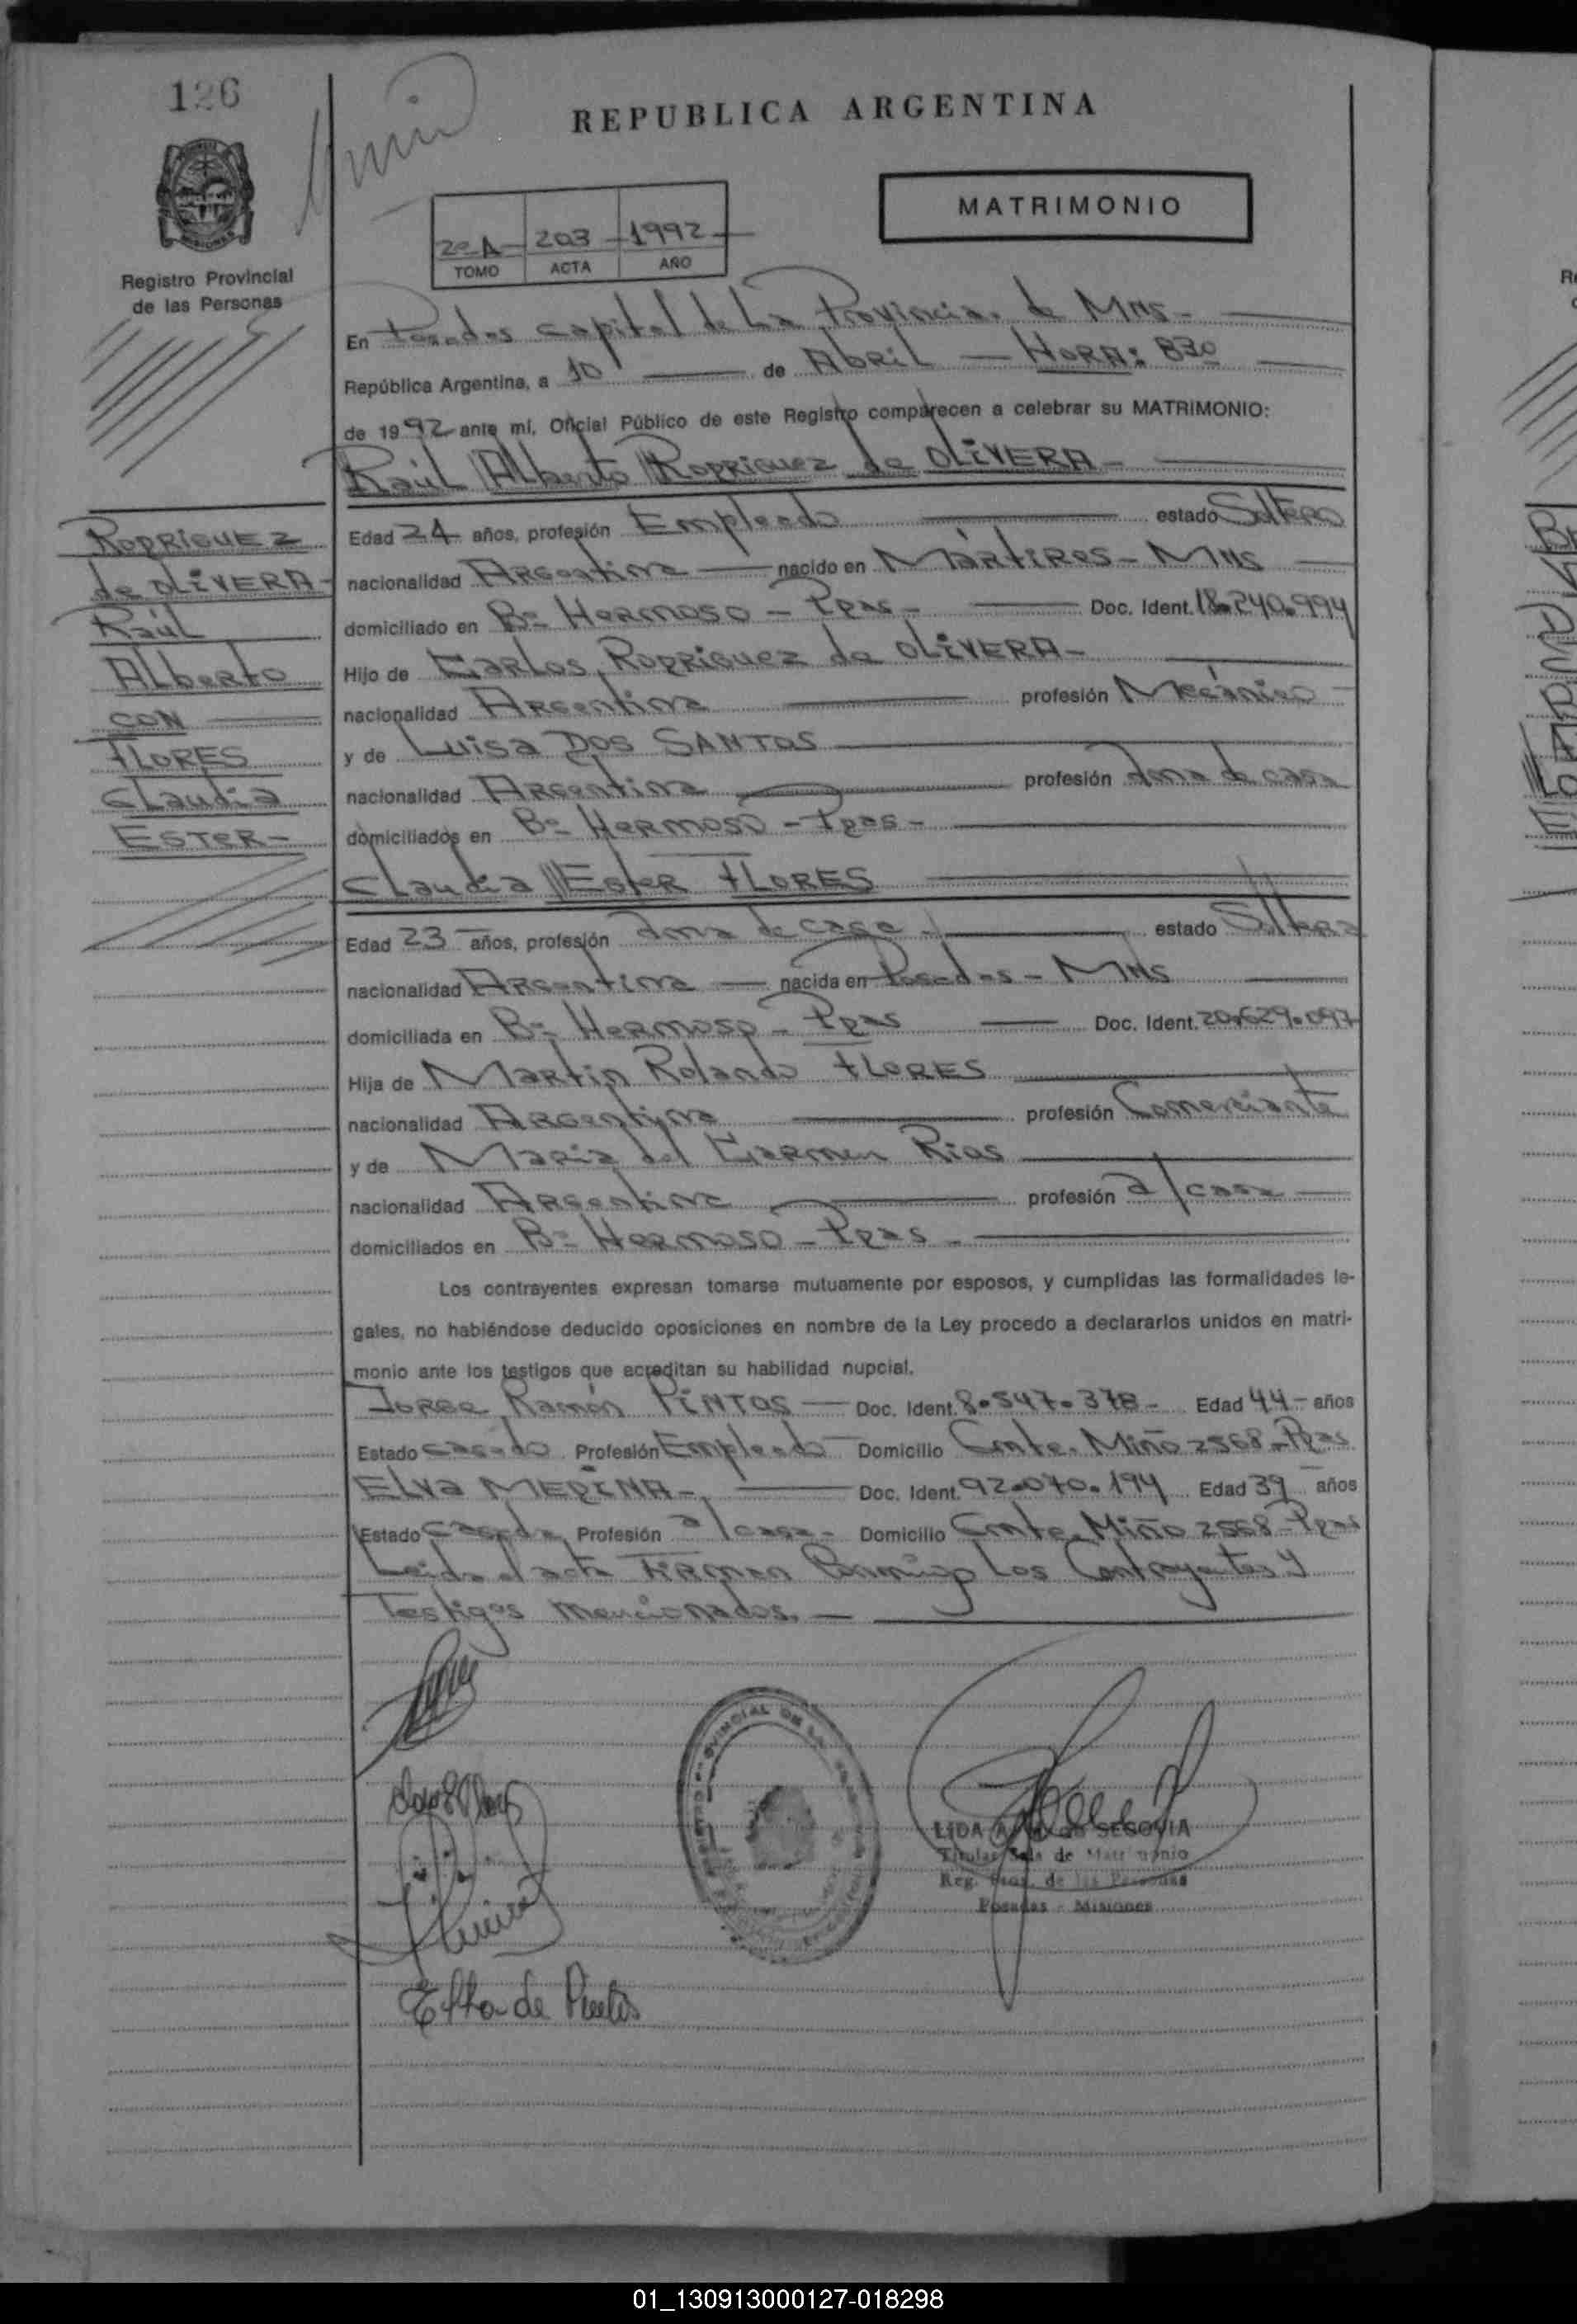 126
REPUBLICA ARGENTINA
MATRIMONIO
2º A - 203 - 1992
TOMO ACTA AÑO
Registro Provincial
de las Personas
En Posadas Capital de La Provincia de Mns-
República Argentina, a 10 de Abril - HORA: 830
de 1992 ante mí, Oficial Público de este Registro comparecen a celebrar su MATRIMONIO:
Raúl Alberto RODRIGUEZ de OLIVERA-
RODRIGUEZ
de OLIVERA-
Raúl
Alberto
CON
FLORES
Claudia
ESTER-
Edad 24 años, profesión Empleado estado Soltero
nacionalidad Argentina nacido en MártiRes - MNS
domiciliado en Bº HERMOSO - Pgas- Doc. Ident. 18.240.994
Hijo de Carlos RODRIGUEZ de OLIVERA-
nacionalidad Argentina profesión Mecánico
y de Luisa DOS SANTOS
nacionalidad Argentina profesión Ama de casa
domiciliados en Bº HERMOSO - Pgas-
Claudia Ester FLORES
Edad 23 años, profesión Ama de casa estado Soltera
nacionalidad Argentina nacida en Posadas - MNS
domiciliada en Bº HERMOSO - Pgas Doc. Ident. 20.629.097
Hija de Martin Rolando FLORES
nacionalidad Argentina profesión Comerciante
y de Maria del Carmen Rios
nacionalidad Argentina profesión a/casa
domiciliados en Bº Hermoso - Pgas-
Los contrayentes expresan tomarse mutuamente por esposos, y cumplidas las formalidades le-
gales, no habiéndose deducido oposiciones en nombre de la Ley procedo a declararlos unidos en matri-
monio ante los testigos que acreditan su habilidad nupcial.
Jorge Ramón PINTOS Doc. Ident. 8.547.378- Edad 44- años
Estado casado Profesión Empleado Domicilio Cmte. Miño 2568 - Pgas
Elva MEDINA- Doc. Ident. 92.070.194 Edad 39 años
Estado casada Profesión a/casa- Domicilio Cmte. Miño 2568 - Pgas
Leida el acta FIRMAN Conmigo Los Contrayentes y
Testigos mencionados.
LIDA DE SEGOVIA
Titular Sala de Matrimonio
Reg. Prov. de las Personas
Posadas - Misiones
Elba de Pintos
01_130913000127-018298